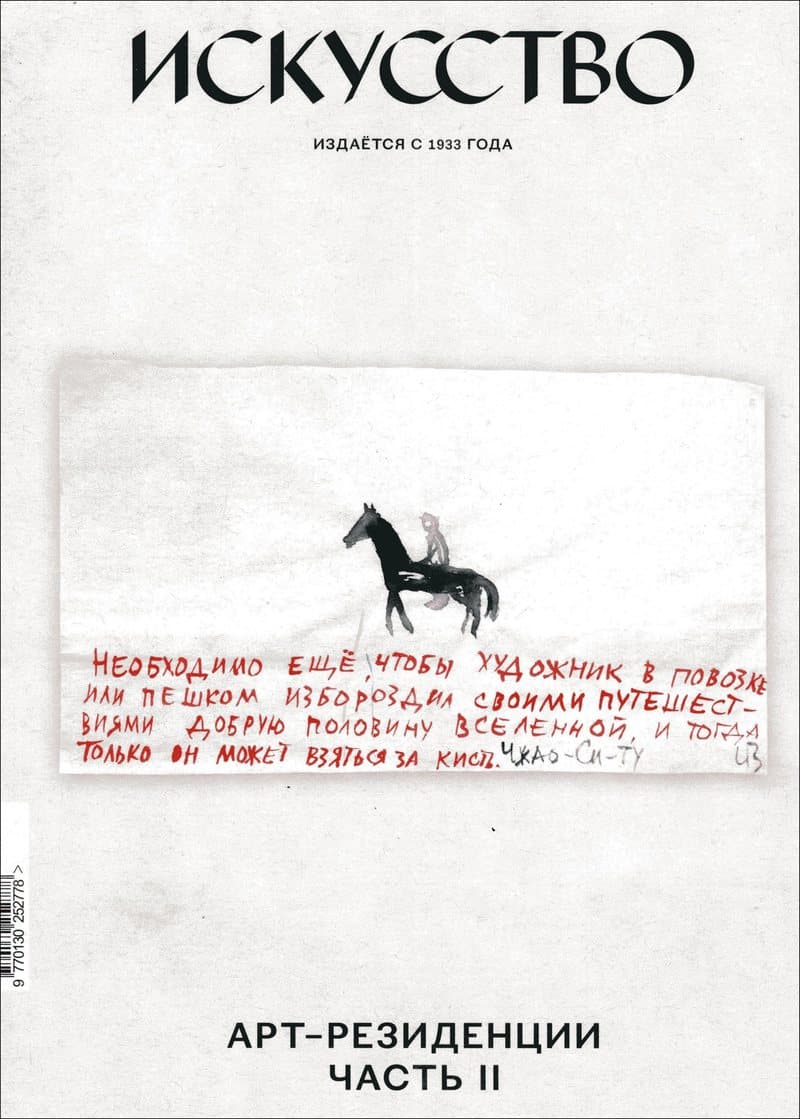 ИСКУССТВО
ИЗДАЁТСЯ С 1933 ГОДА
НЕОБХОДИМО ЕЩЁ, ЧТОБЫ ХУДОЖНИК В ПОВОЗКЕ
ИЛИ ПЕШКОМ ИЗБОРОЗДИЛ СВОИМИ ПУТЕШЕСТ-
ВИЯМИ ДОБРУЮ ПОЛОВИНУ ВСЕЛЕННОЙ, И ТОГДА
ТОЛЬКО ОН МОЖЕТ ВЗЯТЬСЯ ЗА КИСТЬ. ЧЖАО-СИ-ТУ
9 770130 252778 >
АРТ-РЕЗИДЕНЦИИ
ЧАСТЬ II